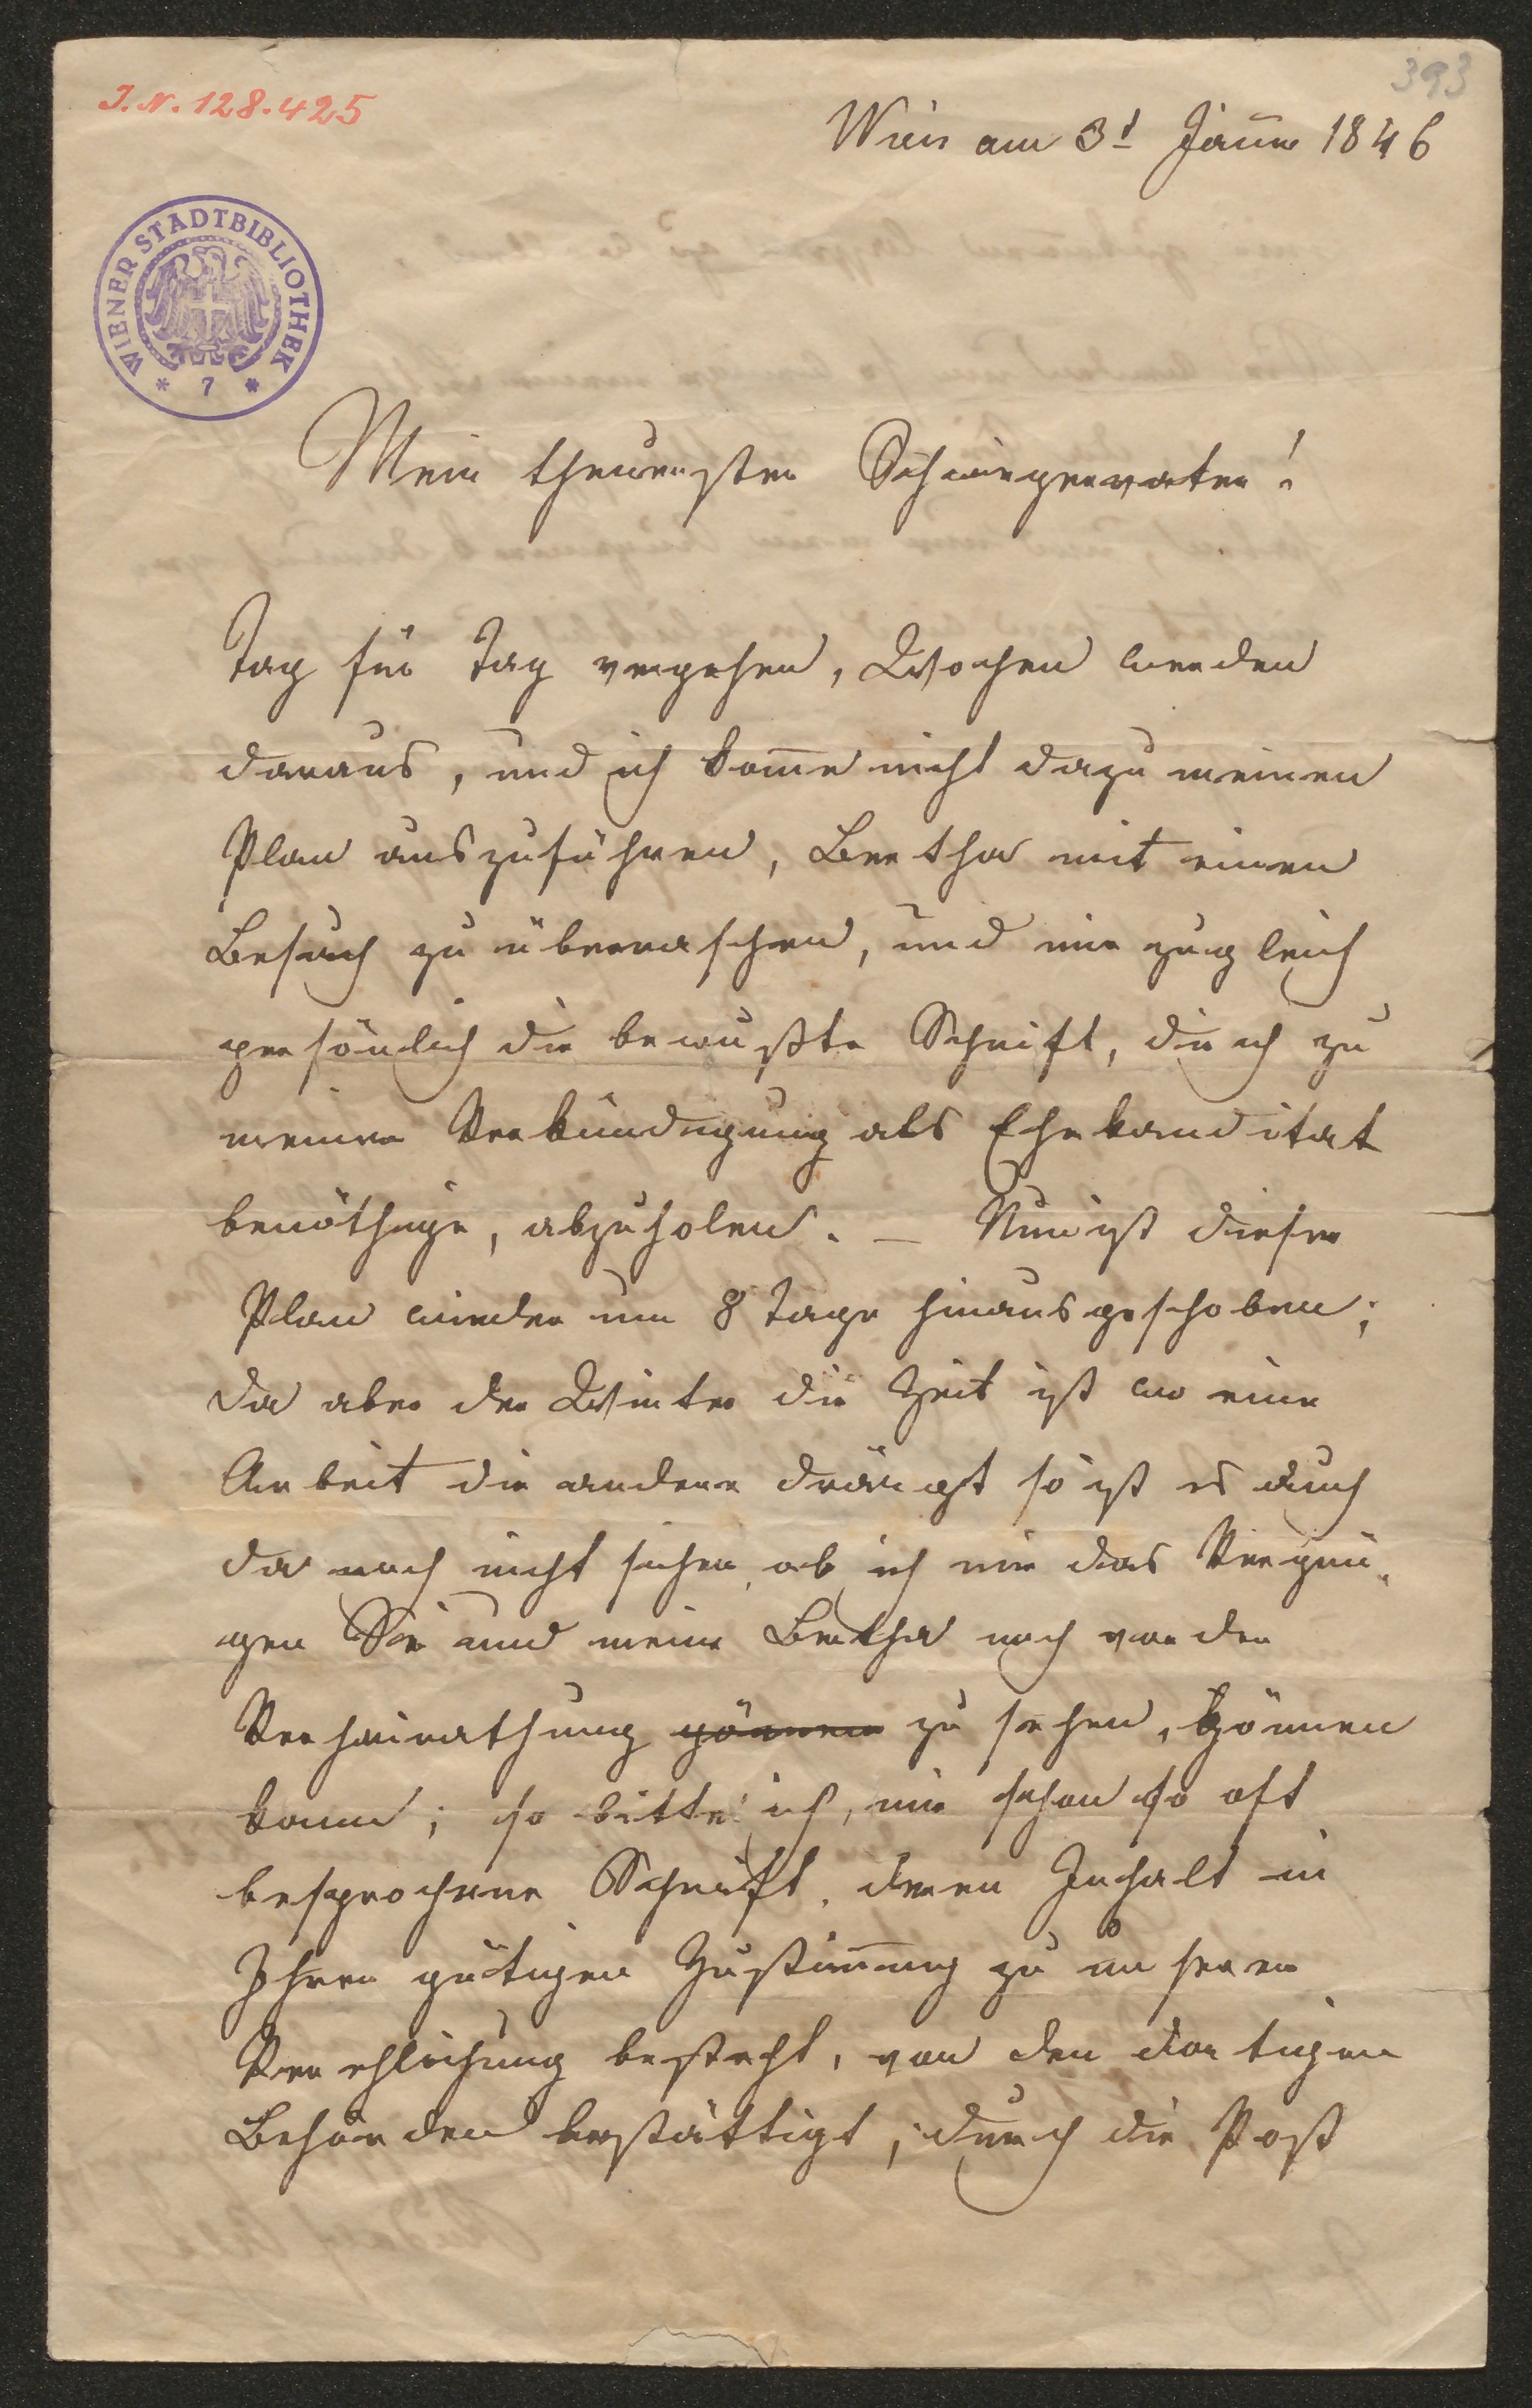 393
I.N. 128.425
Wien am 3t Jänn 1846
WIENER STADTBIBLIOTHEK
* 7 *
Mein theuerster Schwiegervater!
Tag für Tag vergehen, Wochen werden
daraus, und ich kom̅e nicht dazu meinen
Plan auszuführen, Bertha mit einen
Besuch zu überraschen, und mir zugleich
persönlich die bewußte Schrift, die ich zu
meiner Verkündigung als Ehekanditat
benöthige, abzuholen. – Nun ist dieser
Plan wieder um 8 Tage hinausgeschoben;
da aber der Winter die Zeit ist wo eine
Arbeit die andere drängt so ist es auch
da noch nicht sicher, ob ich mir das Vergnü„
gen Sie und meine Bertha noch vor der
Verheirathung gönnen zu sehen, gönnen
kann; so bitte ich, mir schon so oft
besprochene Schrift, deren Inhalt in
Ihrer gütigen Zustim̅ung zu unserer
Verehlichung besteht, von den dortigen
Behörden bestättigt, durch die Post